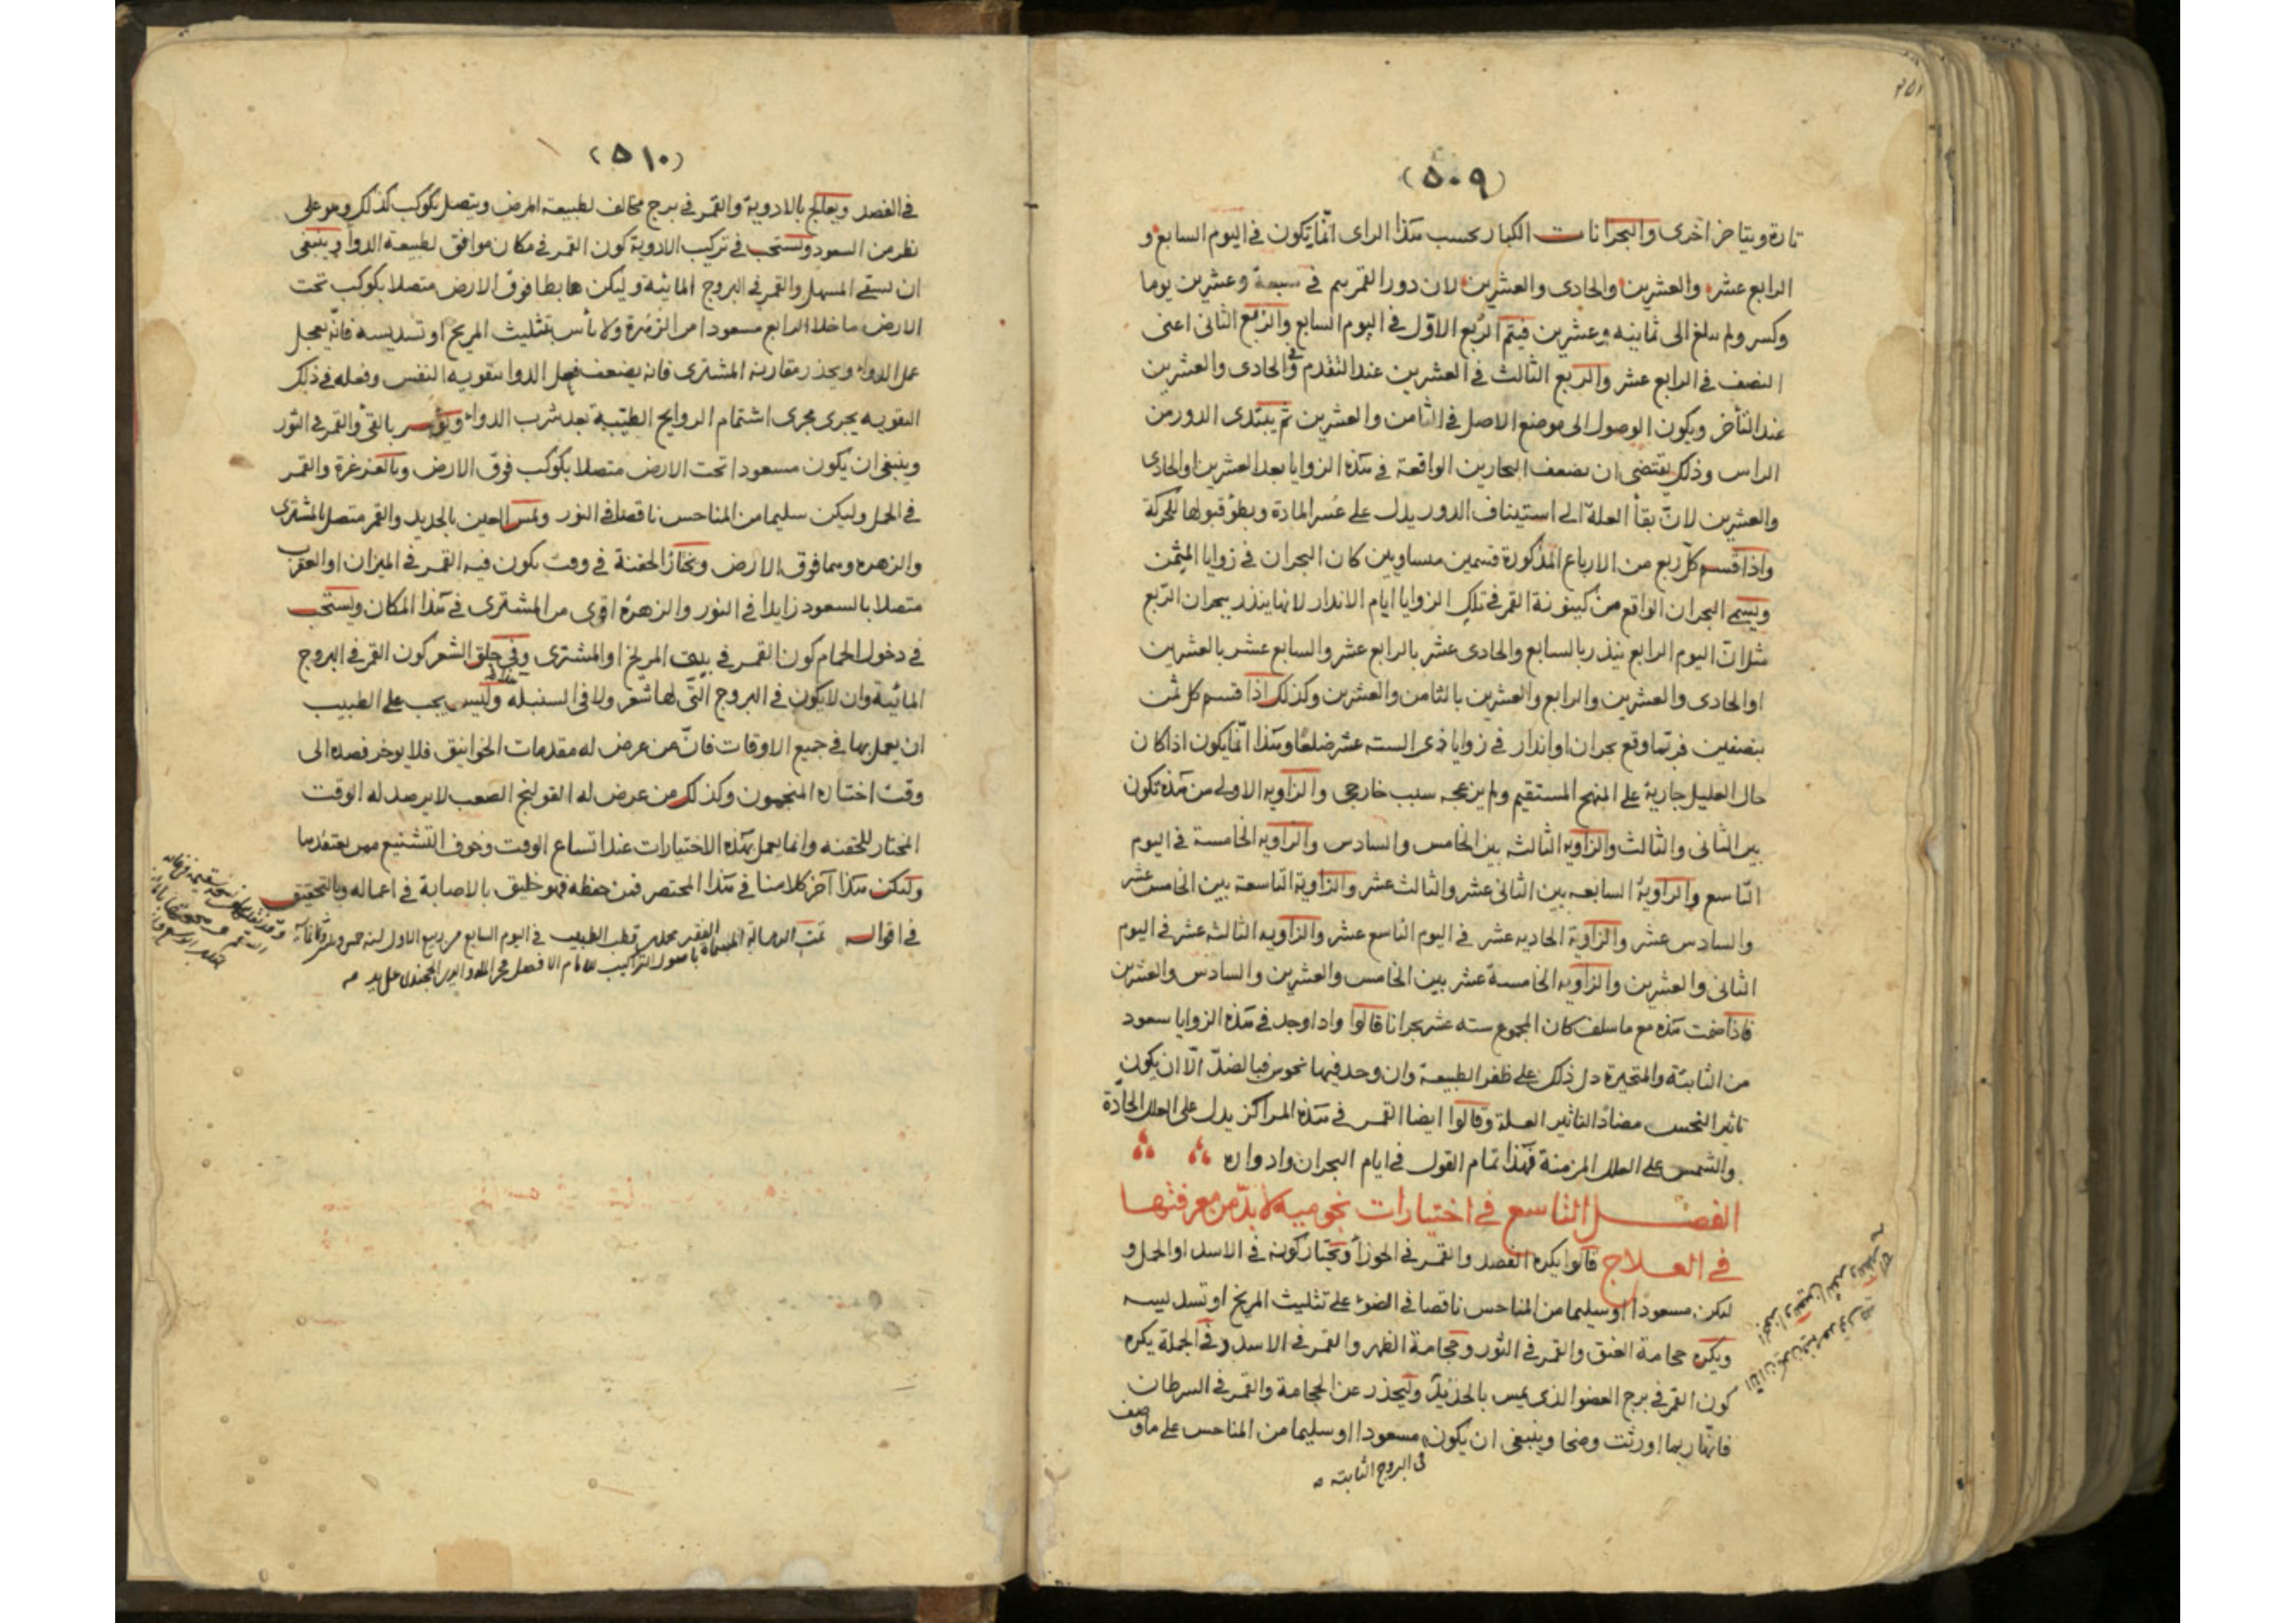 (٥٠٩)
تارة ويتاخر اخرى والبحرانات الكبار بحسب هذا الراى انما يكون فى اليوم السابع و
الرابع عشر والعشرين والحادى والعشرين لان دور القمر يتم فى سبعة وعشرين يوما
وكسر ولم يبلغ الى ثمانيه وعشرين فيتم الربع الاول فى اليوم السابع والربع الثانى اعنى
النصف فى الرابع عشر والربع الثالث فى العشرين عند التقدم وفى الحادى والعشرين
عند التأخر ويكون الوصول الى موضع الاصل فى الثامن والعشرين ثم يبتدى الدور من
الراس وذلك يقتضى ان يضعف البحارين الواقعة فى هذه الزوايا بعد العشرين او الحادى
والعشرين لان بقأ العلة الى استيناف الدور يدل على عسر المادة وبطؤ قبولها للحركة
واذا قسم كل ربع من الارباع المذكورة قسمين متساويين كان البحران فى زوايا المثمن
ويسمى البحران الواقع من كينونة القمر فى تلك الزوايا ايام الانذار لانها ينذر ببحران الربع
مثلا ان اليوم الرابع ينذر بالسابع والحادى عشر بالرابع عشر والسابع عشر بالعشرين
او الحادى والعشرين والرابع والعشرين بالثامن والعشرين وكذلك اذا قسم كل ثمن
بنصفين فربما وقع بحران او انذار فى زوايا ذى الستة عشر ضلعا وهذا انما يكون اذا كان
حال العليل جارية على المنهج المستقيم ولم يزعجه سبب خارجى والزاويه الاولى من هذه تكون
بين الثانى والثالث والزاويه الثالثه بين الخامس والسادس والزاويه الخامسة فى اليوم
التاسع والزاوية السابعه بين الثانى عشر والثالث عشر والزاوية التاسعة بين الخامس عشر
والسادس عشر والزاوية الحاديه عشر فى اليوم التاسع عشر والزاويه الثالثه عشر فى اليوم
الثانى والعشرين والزاويه الخامسة عشر بين الخامس والعشرين والسادس والعشرين
فاذا ضمت هذه مع ما سلف كان المجموع سته عشر بحرانا قالوا واذا وجد فى هذه الزوايا سعود
من الثابتة والمتحيرة دل ذلك على ظفر الطبيعة وان وجد فيها نحوس فبالضد الا ان يكون
تاثير النحس مضادا لتاثير العلة وقالوا ايضا القمر فى هذه المراكز يدل على العلل الحادة
والشمس على العلل المزمنة فهذا تمام القول فى ايام البحران وادواره
الفصل التاسع فى اختيارات نجوميه لا بد من معرفتها
فى العلاج قالوا يكره الفصد والقمر فى الجوزأ ويختار كونه فى الاسد او الحمل و
ليكن مسعودا او سليما من المناحس ناقصا فى الضوء على تثليث المريخ او تسديسه
ويكره حجامة العنق والقمر فى الثور وحجامة الظهر والقمر فى الاسد وفى الجملة يكره
كون القمر فى برج العضو الذى يمس بالحديد وليحذر عن الحجامة والقمر فى السرطان
فانها ربما اورثت وضحا وينبغى ان يكون مسعودا او سليما من المناحس على ما وصف
فى البروج الثابته
(٥١٠)
فى الفصد ويعالج بالادوية والقمر فى برج مخالف لطبيعة المرض ويتصل بكوكب كذلك وهو على
نظر من السعود ويستحب فى تركيب الادوية كون القمر فى مكان موافق لطبيعة الدوأ وينبغى
ان يسقى المسهل والقمر فى البروج المائيه وليكن هابطا فوق الارض متصلا بكوكب تحت
الارض ما خلا الرابع مسعودا من الزهرة ولا بأس بتثليث المريخ او تسديسه فانه يعجل
عمل الدواء ويحذر مقارنة المشترى فانه يضعف فعل الدوا بتقويه النفس وفعله فى ذلك
التقويه يجرى مجرى اشتمام الروايح الطيبة بعد شرب الدواء ويؤمر بالقئ والقمر فى الثور
وينبغى ان يكون مسعودا تحت الارض متصلا بكوكب فوق الارض وبالغرغرة والقمر
فى الحمل وليكن سليما من المناحس ناقصا فى النور ولمس العين بالحديد والقمر متصل بالمشترى
والزهره وهما فوق الارض ويختار الحقنة فى وقت يكون فيه القمر فى الميزان او العقرب
متصلا بالسعود زايدا فى النور والزهرة اقوى من المشترى فى هذا المكان ويستحب
فى دخول الحمام كون القمر فى بيت المريخ او المشترى وفى حلق الشعر كون القمر فى البروج
المائية وان لا يكون فى البروج التى لها شعر ولا فى السنبله وليس يجب على الطبيب
ان يعمل بها فى جميع الاوقات فان من عرض له مقدمات الخوانيق فلا يوخر فصده الى
وقت اختاره المنجمون وكذلك من عرض له القولنج الصعب لا يرصد له الوقت
المختار للحقنه وانما يعمل بهذه الاختيارات عند اتساع الوقت وخوف التشنيع ممن يعتقدها
وليكن هذا آخر كلامنا فى هذا المختصر فمن حفظه فهو خليق بالاصابة فى اعماله وبالتحقيق
فى اقواله تمت الرسالة المسماة باصول التراكيب للامام الافضل
قطب الطبيب فى اليوم السابع من ربيع الاول